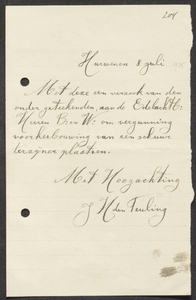 208
Hurwenen 8 Juli
Met deze een verzoek van den
onder getekenden, aan de Edelacht
Heeren B en W: om vergunning
voor herbouwing van een schuur
terzijner plaatsen.
Met Hoogachting
J H den Teuling